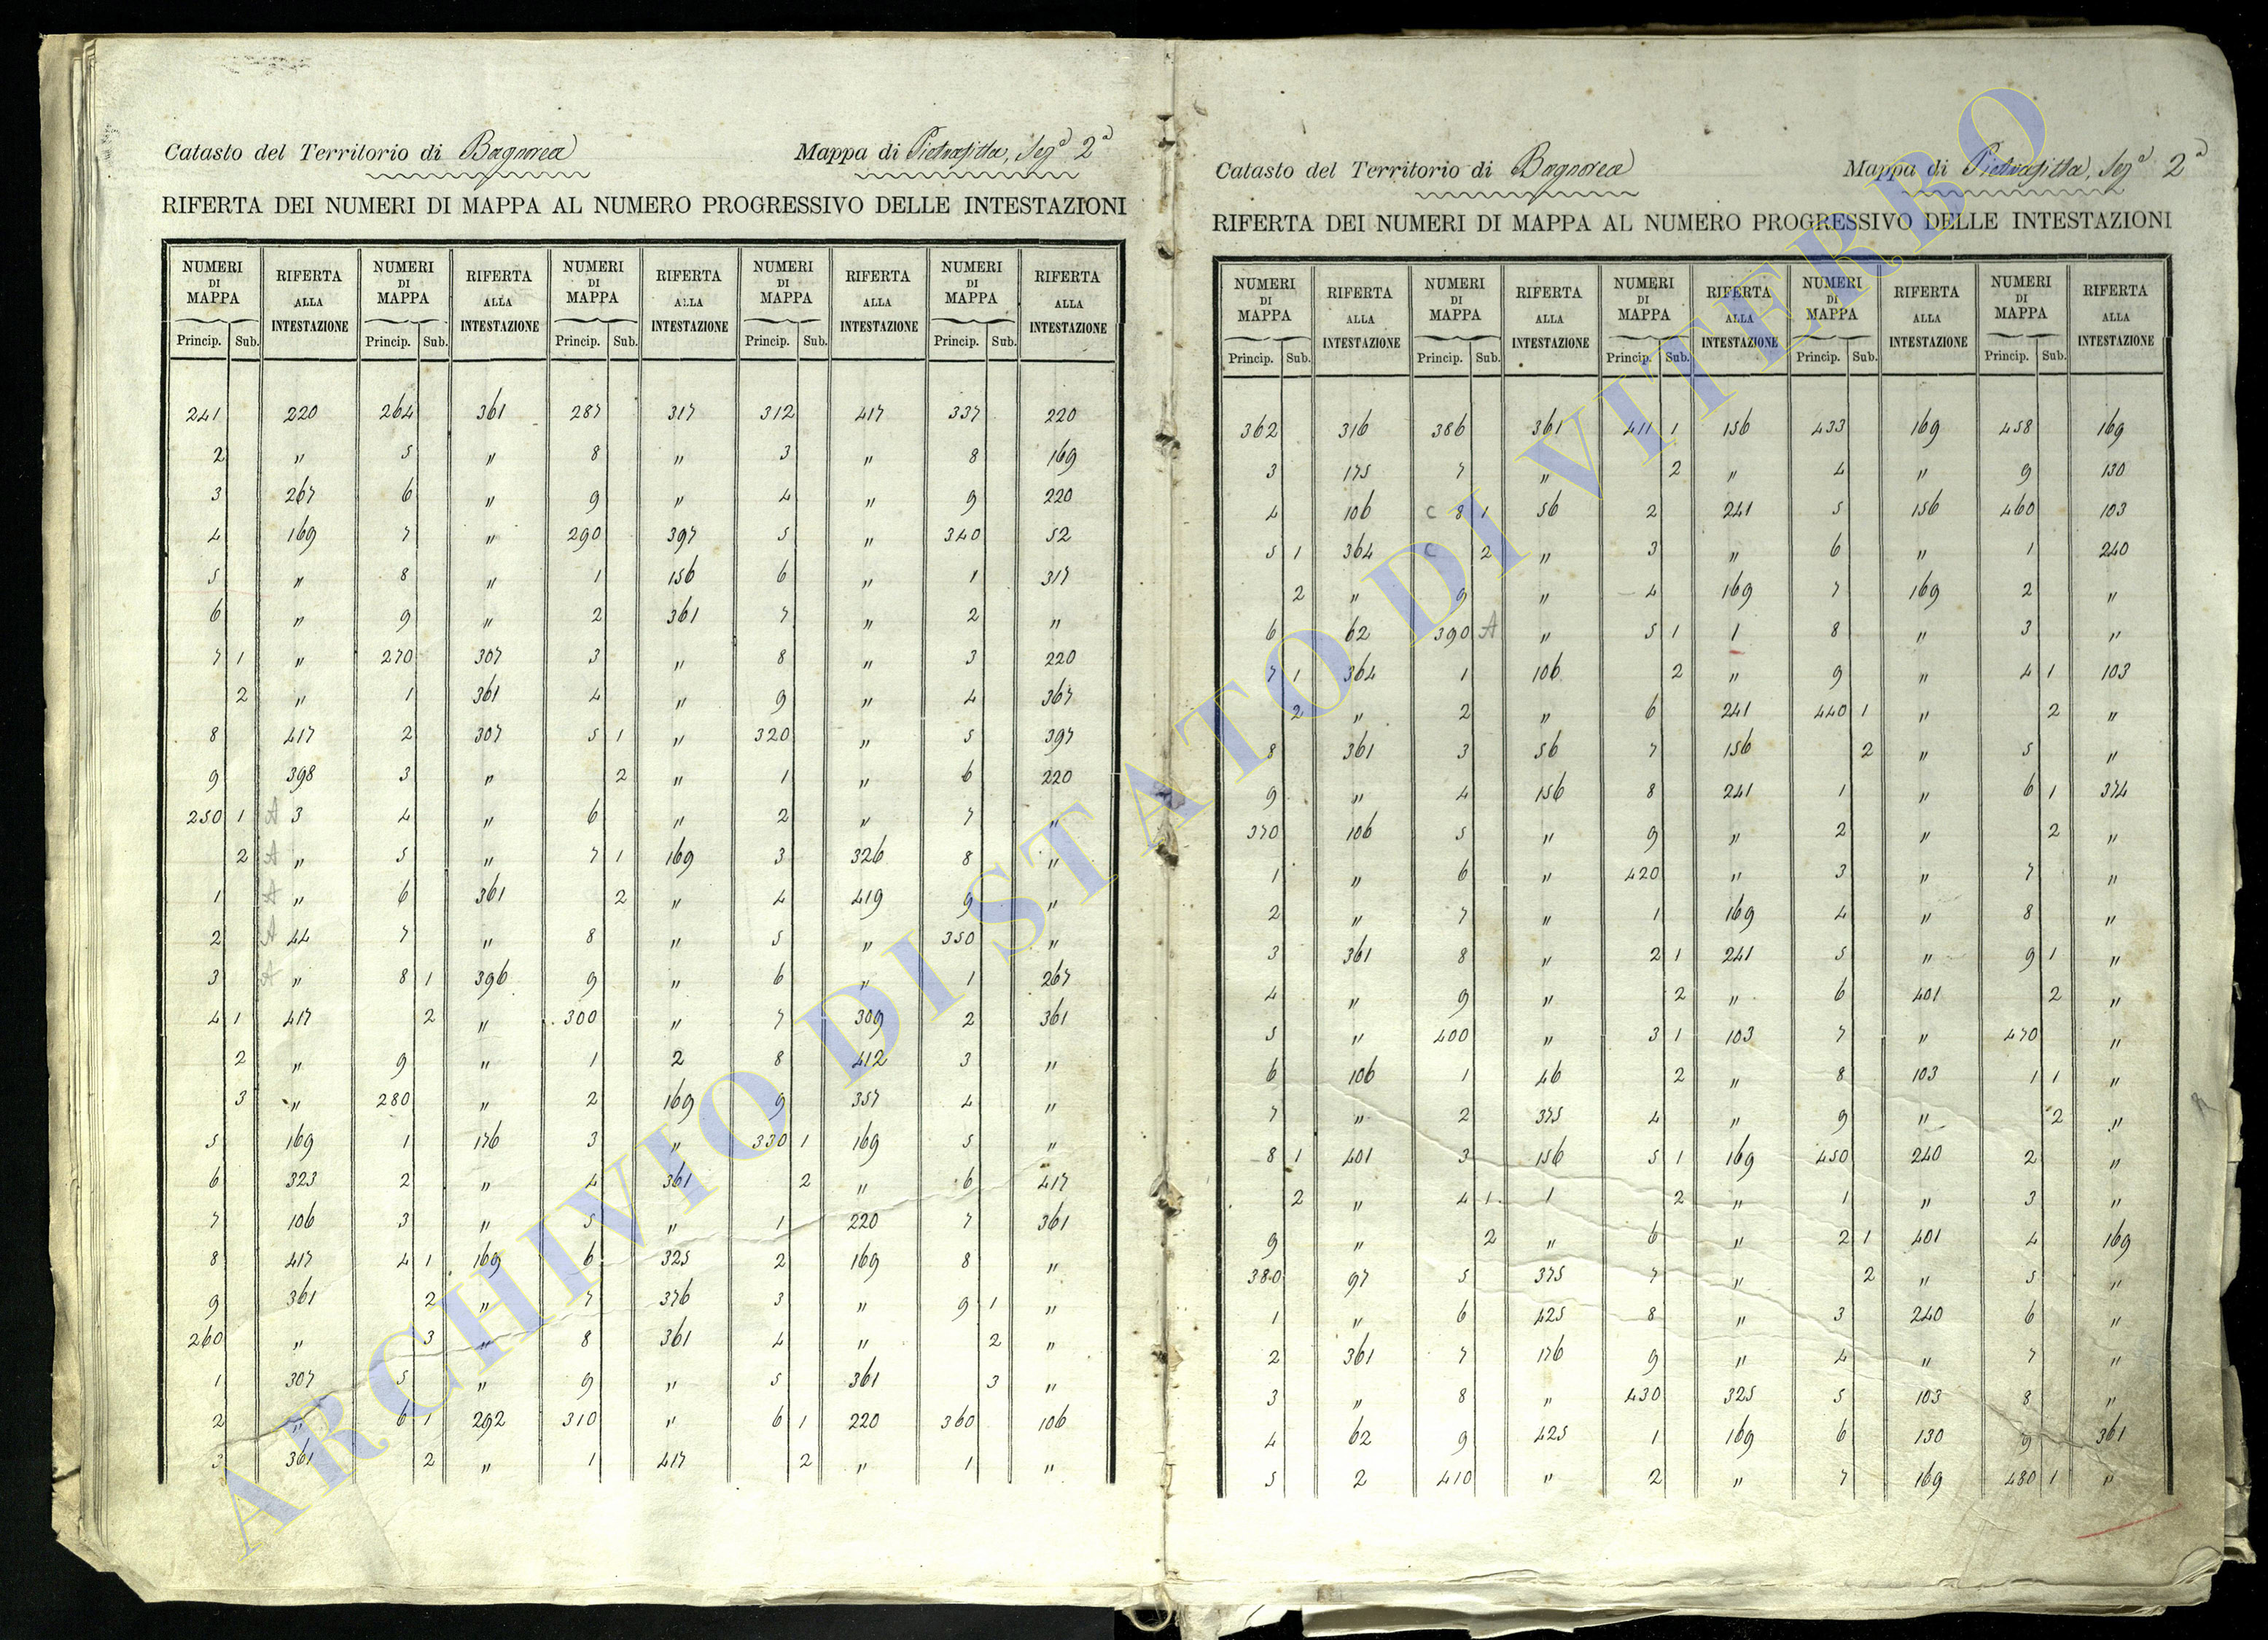 Catasto del Territorio di Bagnorea Mappa di Pietrafitta, Sez.ª 2ª
RIFERTA DEI NUMERI DI MAPPA AL NUMERO PROGRESSIVO DELLE INTESTAZIONI
NUMERI DI MAPPA RIFERTA ALLA INTESTAZIONE NUMERI DI MAPPA RIFERTA ALLA INTESTAZIONE NUMERI DI MAPPA RIFERTA ALLA INTESTAZIONE NUMERI DI MAPPA RIFERTA ALLA INTESTAZIONE NUMERI DI MAPPA RIFERTA ALLA INTESTAZIONE
Princip. Sub. Princip. Sub. Princip. Sub. Princip. Sub. Princip. Sub.
241 220 264 361 287 317 312 417 337 220
2 " 5 " 8 " 3 " 8 169
3 267 6 " 9 " 4 " 9 220
4 169 7 " 290 397 5 " 340 52
5 " 8 " 1 156 6 " 1 317
6 " 9 " 2 361 7 " 2 "
7 1 " 270 307 3 " 8 " 3 220
2 " 1 361 4 " 9 " 4 367
8 417 2 307 5 1 " 320 " 5 397
9 398 3 " 2 " 1 " 6 220
250 1 A 3 4 " 6 " 2 " 7 "
2 A " 5 " 7 1 169 3 326 8 "
1 A " 6 361 2 " 4 419 9 "
2 A 44 7 " 8 " 5 " 350 "
3 A " 8 1 396 9 " 6 " 1 267
4 1 417 2 " 300 " 7 309 2 361
2 " 9 " 1 2 8 412 3 "
3 " 280 " 2 169 9 357 4 "
5 169 1 176 3 " 330 1 169 5 "
6 323 2 " 4 361 2 " 6 417
7 106 3 " 5 " 1 220 7 361
8 417 4 1 169 6 325 2 169 8 "
9 361 2 " 7 376 3 " 9 1 "
260 " 3 " 8 361 4 " 2 "
1 307 5 " 9 " 5 361 3 "
2 " 6 1 292 310 " 6 1 220 360 106
3 361 2 " 1 417 2 " 1 "
Catasto del Territorio di Bagnorea Mappa di Pietrafitta, Sez.ª 2ª
RIFERTA DEI NUMERI DI MAPPA AL NUMERO PROGRESSIVO DELLE INTESTAZIONI
NUMERI DI MAPPA RIFERTA ALLA INTESTAZIONE NUMERI DI MAPPA RIFERTA ALLA INTESTAZIONE NUMERI DI MAPPA RIFERTA ALLA INTESTAZIONE NUMERI DI MAPPA RIFERTA ALLA INTESTAZIONE NUMERI DI MAPPA RIFERTA ALLA INTESTAZIONE
Princip. Sub. Princip. Sub. Princip. Sub. Princip. Sub. Princip. Sub.
362 316 386 361 411 1 156 433 169 458 169
3 175 7 " 2 " 4 " 9 130
4 106 C 8 1 56 2 241 5 156 460 103
5 1 364 C 2 " 3 " 6 " 1 240
2 " 9 " 4 169 7 169 2 "
6 62 390 A " 5 1 1 8 " 3 "
7 1 364 1 106 2 " 9 " 4 1 103
2 " 2 " 6 241 440 1 " 2 "
8 361 3 56 7 156 2 " 5 "
9 " 4 156 8 241 1 " 6 1 374
370 106 5 " 9 " 2 " 2 "
1 " 6 " 420 " 3 " 7 "
2 " 7 " 1 169 4 " 8 "
3 361 8 " 2 1 241 5 " 9 1 "
4 " 9 " 2 " 6 401 2 "
5 " 400 " 3 1 103 7 " 470 "
6 106 1 46 2 " 8 103 1 1 "
7 " 2 375 4 " 9 " 2 "
8 1 401 3 156 5 1 169 450 240 2 "
2 " 4 1 1 2 " 1 " 3 "
9 " 2 " 6 " 2 1 401 4 169
380 97 5 375 7 " 2 " 5 "
1 " 6 425 8 " 3 240 6 "
2 361 7 176 9 " 4 " 7 "
3 " 8 " 430 325 5 103 8 "
4 62 9 425 1 169 6 130 9 361
5 2 410 " 2 " 7 169 480 1 "
ARCHIVIO DI STATO DI VITERBO